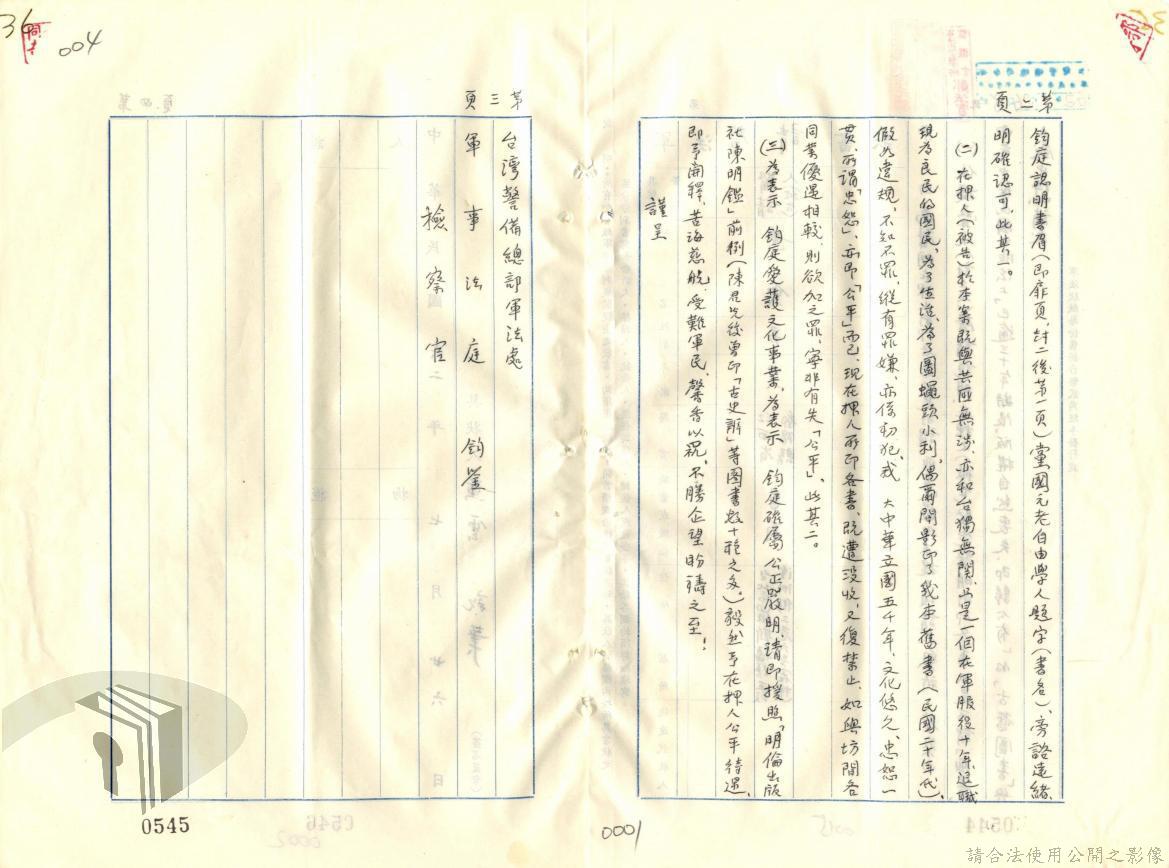 第二頁
鈞庭認明書眉(即扉頁,封二後第一頁)黨國元老白由學人題字(書名),旁諮遠緒,
明確認可,此其一。
(二)在押人(被告)於本案既與共匪無涉,亦和台獨無関,止是一個在軍服役十年,退職
現為良民的國民,為了生活,為了圖蠅頭小利,偶爾間影印了幾本舊書(民國二十年代),
假如違規,不知不罪,縱有罪嫌,亦係初犯,我 大中華立國五千年,文化悠久,忠恕一
貫,所謂「忠恕」,亦即「公平」而已,現在押人所印各書,既遭沒收,又復禁止,如與坊間各
同業優遇相較,則欲加之罪,寧非有失「公平」,此其二。
(三)為表示 鈞庭愛護文化事業,為表示 鈞庭確屬公正嚴明,請即援照「明倫出版
社陳明鑑」前例(陳君先後曾印「古史辨」等圖書數十種之多,)毅然予在押人公平待遇,
即予開釋,苦海慈航,受難軍民,馨香以祝,不勝企望盼禱之至!
謹呈
第三頁
台灣警備總部軍法處
軍事法庭 鈞鑒
檢察官
0001
0545
0544
004
36
請合法使用公開之影像